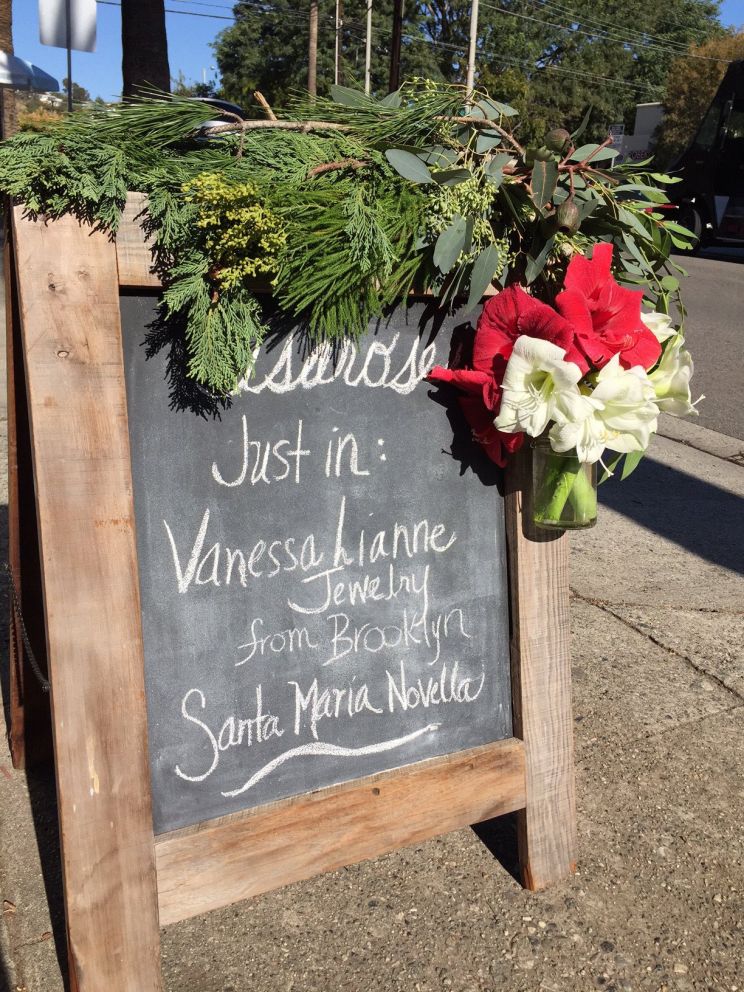 Just in:
Vanessa Lianne
Jewelry
from Brooklyn
Santa Maria Novella